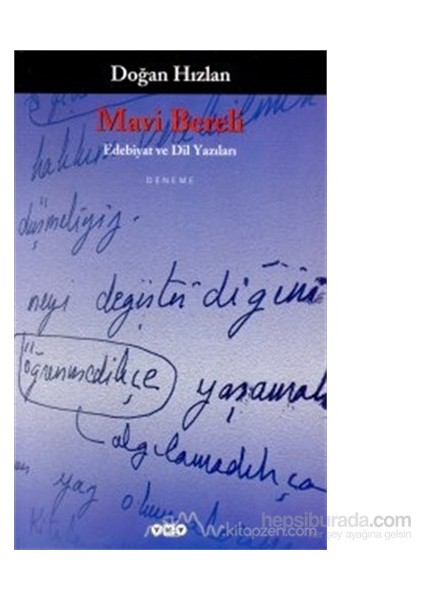 Doğan Hızlan
Mavi Bereli
Edebiyat ve Dil Yazıları
DENEME
düşmeliyiz.
neyi değiştirdiğini
öğrenmedikçe yaşamak
algılamadıkça
yaz
YKY
kitapzen.com
hepsiburada.com
her şey ayağına gelsin